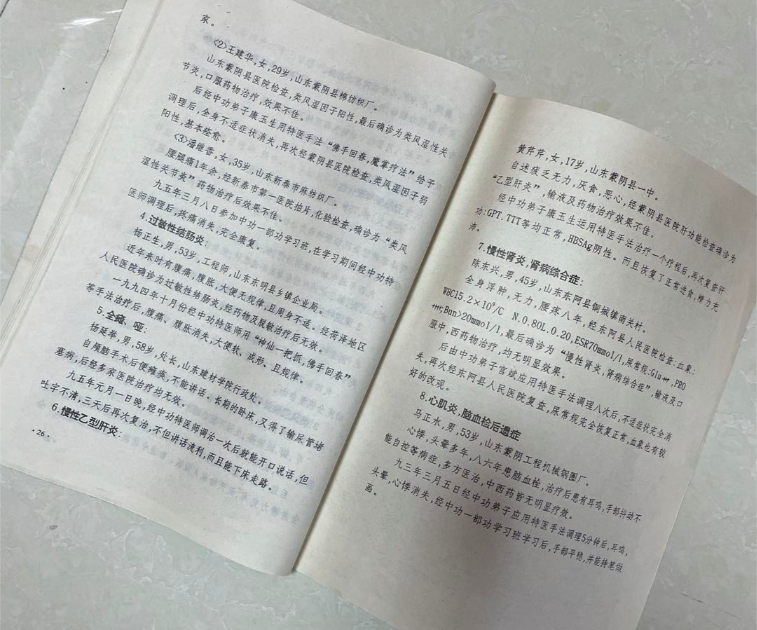 家。
〈2〉王建华,女,29岁,山东蒙阴县棉纺织厂。
山东蒙阴县医院检查,类风湿因子阳性,最后确诊为类风湿性关
节炎,口服药物治疗,效果不佳。
后经中功弟子康玉生用特医手法“佛手回春,魔掌疗法”给予
调理后,全身不适症状消失,再次经蒙阴县医院检查,类风湿因子弱
阳性,基本痊愈。
〈3〉潘继香,女,35岁,山东新泰市麻纺织厂。
腰腿痛1年余,经新泰市第一医院拍片,化验检查,确诊为“类风
湿性关节炎”药物治疗后效果不佳。
九五年三月八日参加中功一部功学习班,在学习期间经中功特
医师调理后,疼痛消失,完全康复。
4.过敏性结肠炎:
杨正生,男,53岁,工程师,山东东明县乡镇企业局。
近年来时有腹痛,腹胀,大便无规律,且周身不适。经菏泽地区
人民医院确诊为过敏性结肠炎,经药物及脱敏治疗后无效。
一九九四年十月份经中功特医师用“神仙一把抓,佛手回春”
等手法治疗后,腹痛、腹胀消失,大便软、成形、且规律。
5.全瘫、哑:
杨延华,男,58岁,处长,山东建材学院行政处。
自颅脑手术后便瘫痪,不能讲话。长期的卧床,又得了输尿管堵
塞病,后经多家医院治疗均无效。
九五年元月一日晚,经中功特医师调治一次后就能开口说话,但
吐字不清,三天后再次复治,不但讲话流利,而且能下床走路。
6.慢性乙型肝炎:
·26·
黄芹芹,女,17岁,山东蒙阴县一中。
自述疲乏无力,厌食,恶心,经蒙阴县医院肝功能检查确诊为
“乙型肝炎”,输液及药物治疗效果不佳。
经中功弟子康玉生运用特医手法治疗一个疗程后,再次复查肝
功:GPT.TTT等均正常,HBSAg阴性。而且恢复了正常进食,精力充
沛。
7.慢性肾炎,肾病综合症:
陈东兴,男,45岁,山东东阿县铜城镇南关村。
全身浮肿,无力,腰疼八年,经东阿县人民医院检查:血象:
WBC15.2×10⁹/C N.0.80L.0.20,ESR70mmol/l,尿常规:Glu+++,PRO
++++,Bun〉20mmol/l,最后确诊为“慢性肾炎,肾病综合症”,输液及口
服中,西药物治疗,均无明显效果。
后由中功弟子宫斌应用特医手法调理八次后,不适症状完全消
失,再次经东阿县人民医院复查,尿常规完全恢复正常,血象也有较
好的改观。
8.心肌炎,脑血栓后遗症
马正水,男,53岁,山东蒙阴工程机械钢圈厂。
心悸,头晕多年,八六年患脑血栓,治疗后患有耳鸣,手部抖动不
能自控等病症,多方医治,中西药皆无明显疗效。
九三年三月五日经中功弟子应用特医手法调理5分钟后,耳鸣,
头晕,心悸消失,经中功一部功学习班学习后,手部平稳,并能持笔做
画。